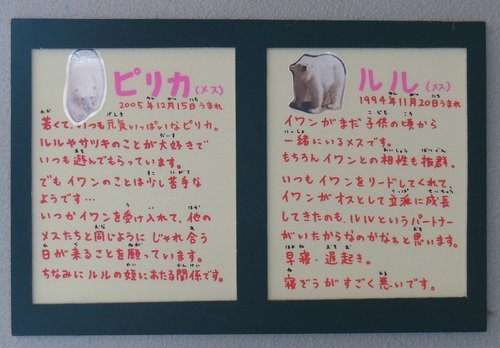 ピリカ(メス)
2005年12月15日うまれ
若くて、いつも元気いっぱいなピリカ。
ルルやサツキのことが大好きで
いつも遊んでもらっています。
でもイワンのことは少し苦手な
ようです…
いつかイワンを受け入れて、他の
メスたちと同じようにじゃれ合う
日が来ることを願っています。
ちなみにルルの姪にあたる関係です。
ルル(メス)
1994年11月20日うまれ
イワンがまだ子供の頃から
一緒にいるメスです。
もちろんイワンとの相性も抜群。
いつもイワンをリードしてくれて、
イワンがオスとして立派に成長
してきたのも、ルルというパートナー
がいたからなのかなぁと思います。
早寝・遅起き。
寝ぞうがすごく悪いです。